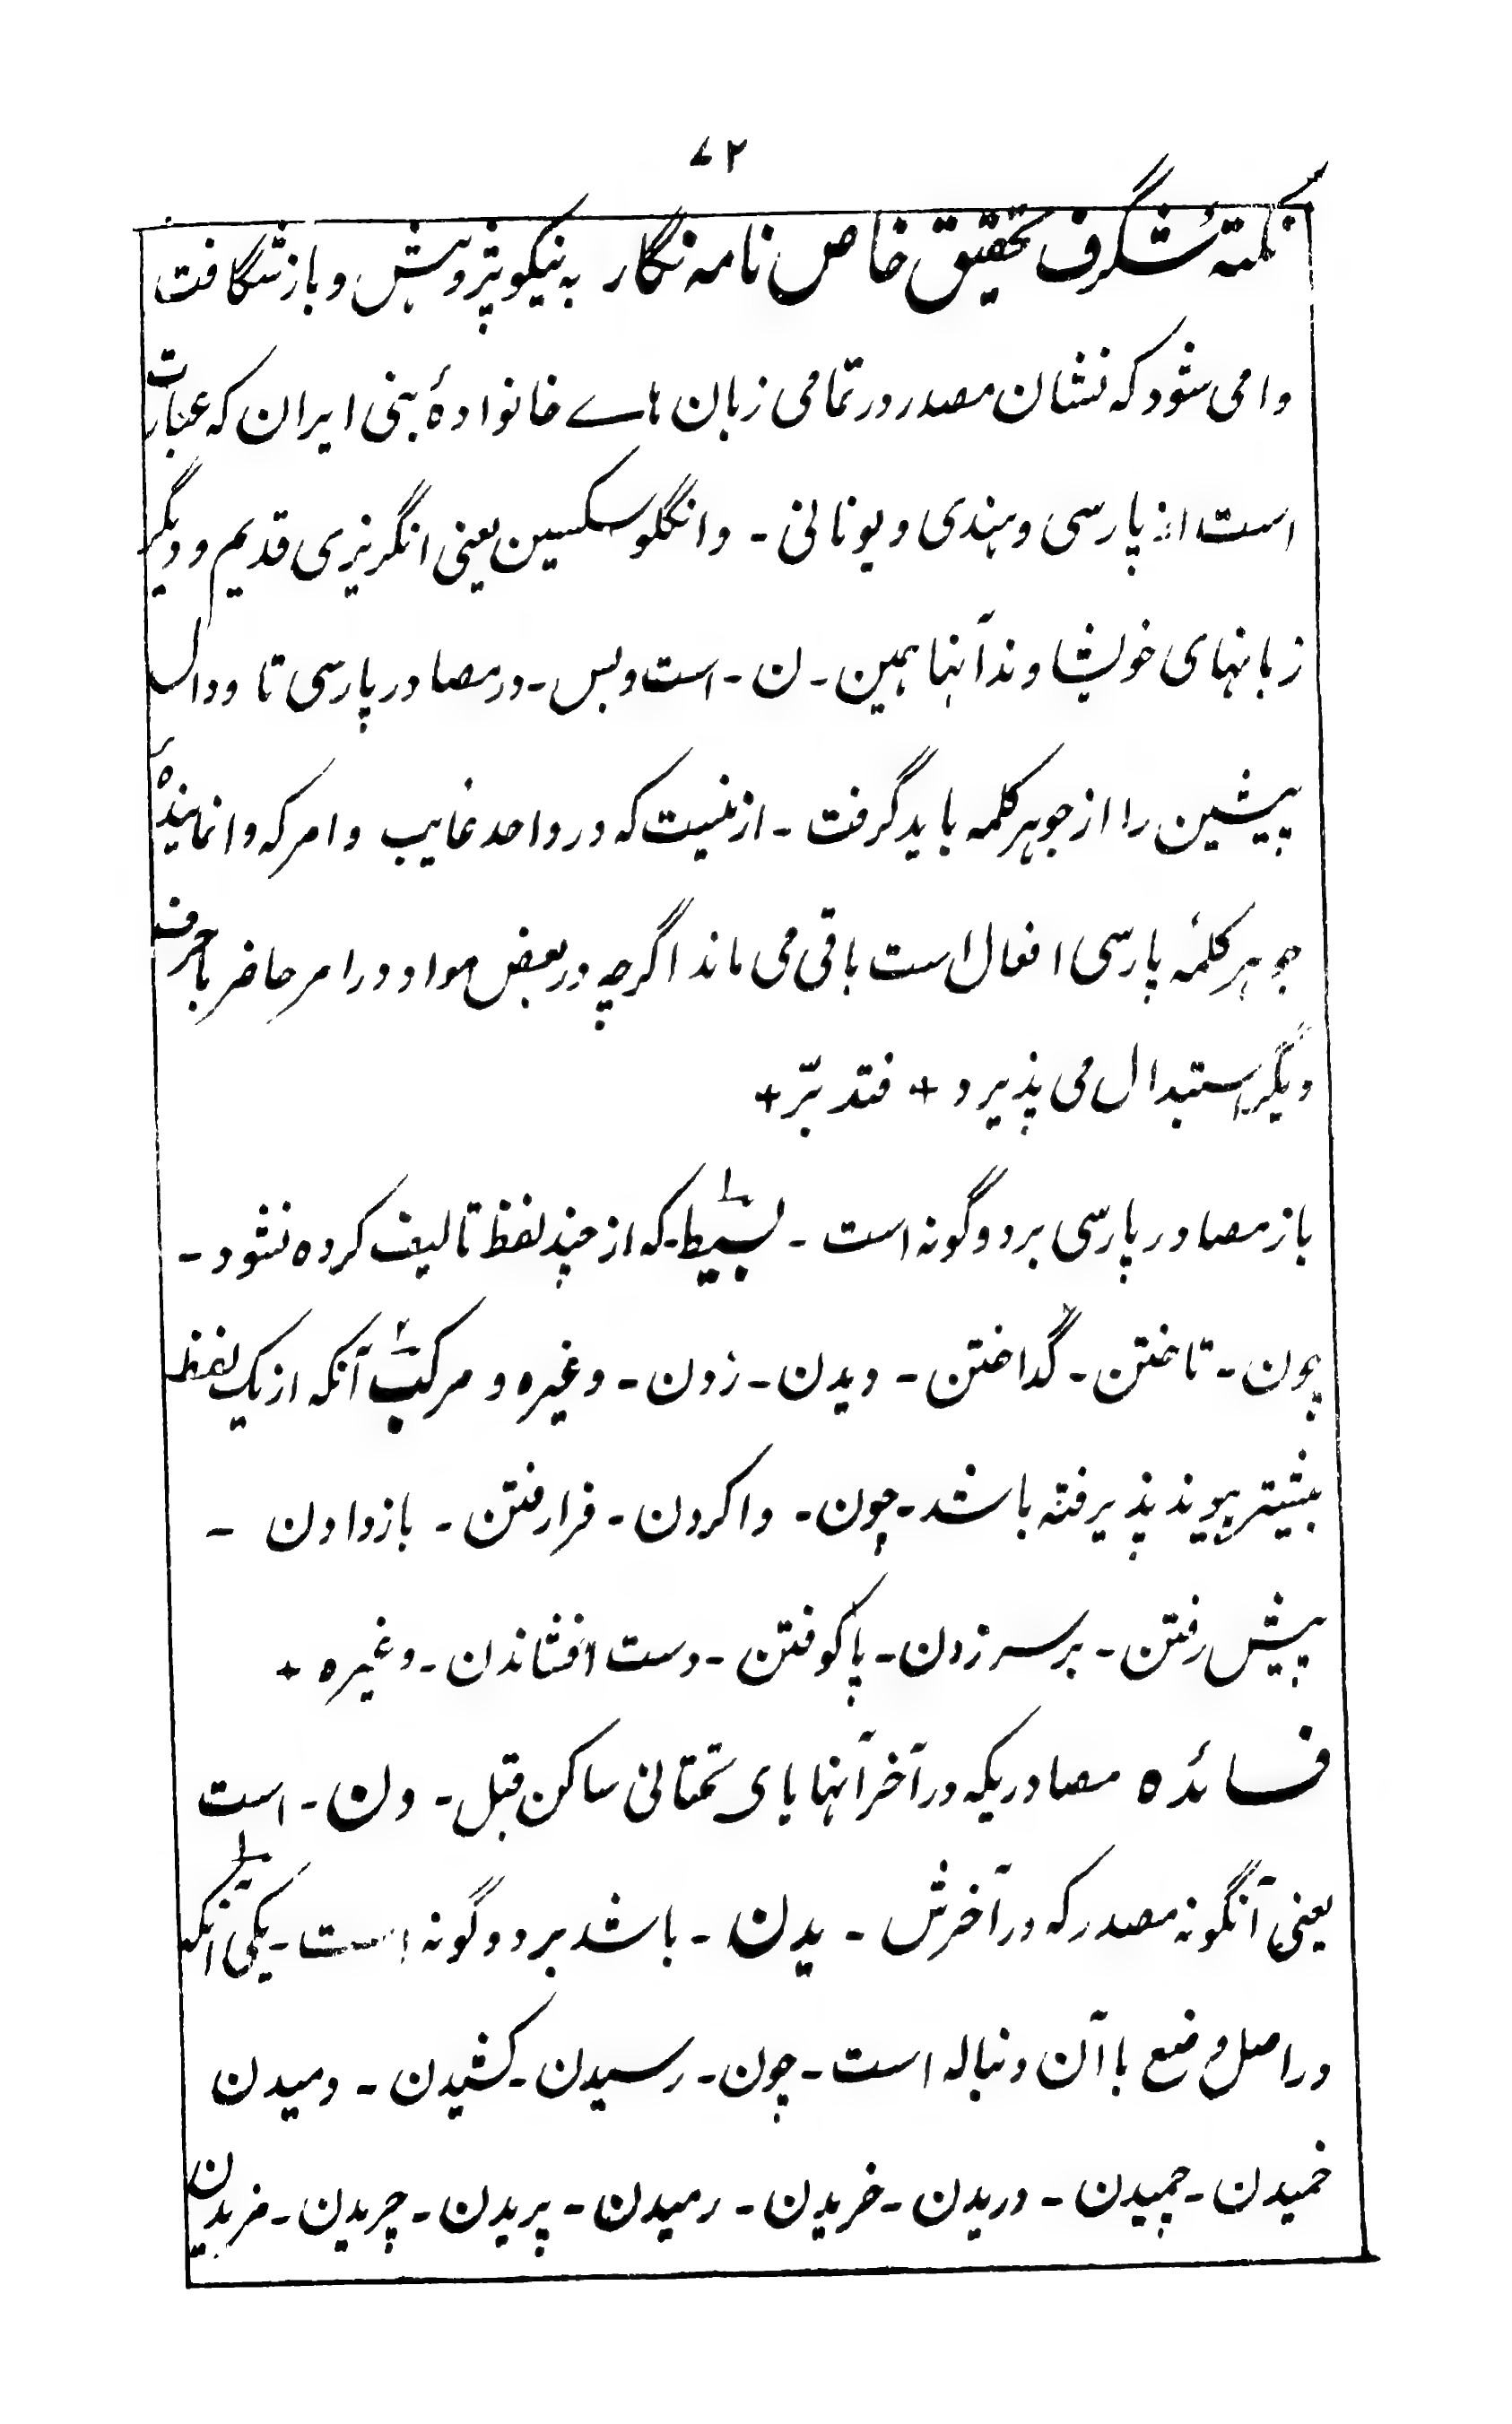 ۷۲
نکتهٔ شگرف تحقیق خاص نامه نگار به نیکو پژوهش و باز شگافت
وا می شود که نشان مصدر در تمامی زبان هاے خانوادهٔ بنی ایران که عبارت
است از پارسی و هندی و یونانی - و انگلو سکسین یعنی انگریزی قدیم و دیگر
زبانهای خویشاوند آنها همین - ن - است و بس - در مصادر پارسی تا و دال
پیشین را از جوهر کلمه باید گرفت - ازینست که در واحد غایب و امر که وا نمایندهٔ
جوهر کلمهٔ پارسی افعال است باقی می ماند اگرچه در بعض مواد در امر حاضر با حرف
دیگر استبدال می پذیرد + فتدبّر +
باز مصادر پارسی بر دو گونه است - بسیط - که از چند لفظ تالیف کرده نشود -
چون - تاختن - گداختن - دیدن - زدن - وغیره و مرکب آنکه از یک لفظ
بیشتر پیوند پذیرفته باشد - چون - وا کردن - فرا رفتن - باز دادن -
پیش رفتن - بر سر زدن - پا کوفتن - دست افشاندن - وغیره +
فائده مصادریکه در آخر آنها یای تحتانی ساکن قبل - دن - است
یعنی آنگونه مصدر که در آخرش - یدن - باشد بر دو گونه است - یکی آنکه
در اصل وضع با آن دنباله است - چون - رسیدن - کشیدن - دمیدن
خمیدن - چمیدن - دریدن - خریدن - رمیدن - پریدن - چریدن - مزیدن